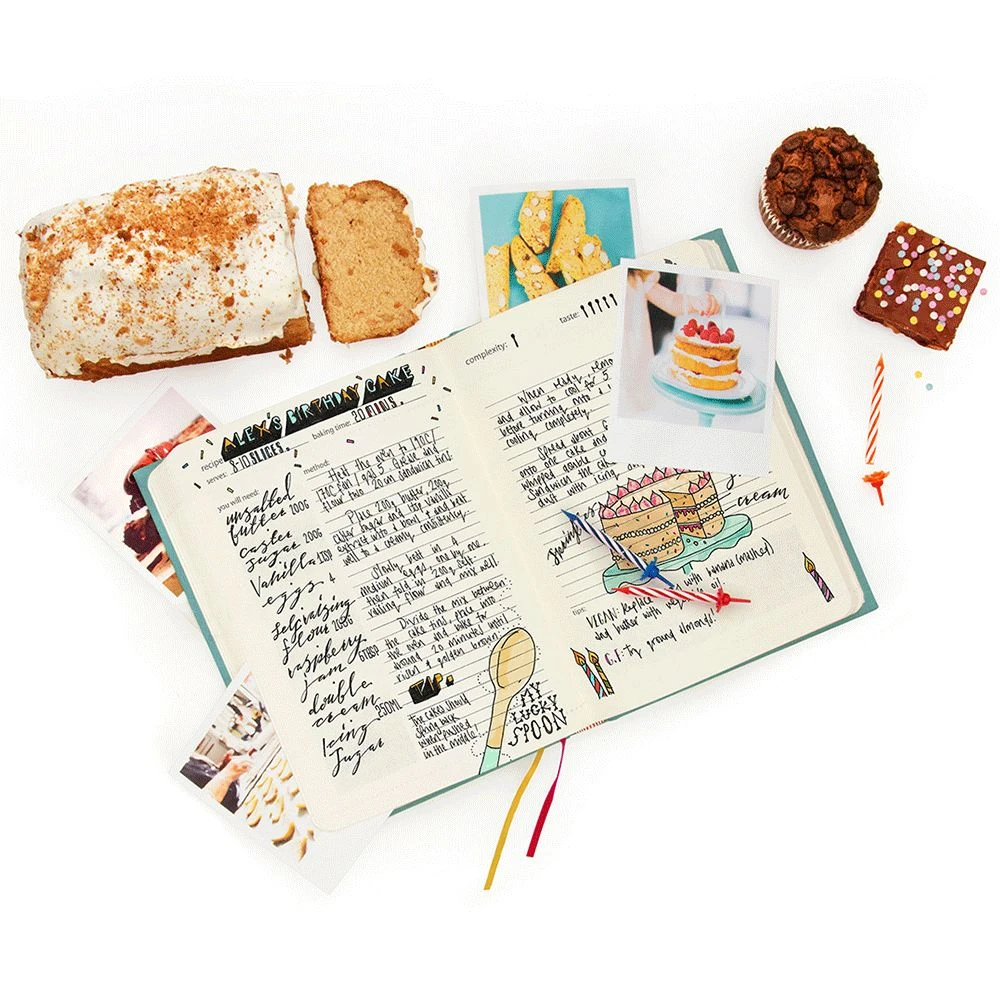 recipe: ALEX'S BIRTHDAY CAKE
serves: 8-10 SLICES. baking time: 20 MINS
you will need:
unsalted
butter 200G
caster
sugar 200G
Vanilla 1TSP
eggs 4
self raising
flour 200G
raspberry
jam 6TBSP
double
cream 250ML
Icing
Sugar
method:
Heat the oven to 190C/
170C fan/gas 5. Grease and
flour two 20cm sandwich tins
Place 200g butter, 200g
caster sugar and 1tsp vanilla
extract into a bowl and beat
well to a creamy consistency.
Slowly beat in 4
medium eggs, one by one
then fold in 200g self
raising flour and mix well.
Divide the mix between
the cake tins, place into
the oven and bake for
around 20 minutes until
risen & golden brown.
TIP:
The cakes should
spring back
when pushed
in the middle!
MY
LUCKY
SPOON
complexity:
taste:
When ready, remo
and allow to cool for 5
before turning onto a
cooling completely.
Spread about 6
onto one cake and
whipped double c
Sandwich the c
dust with icing
cream
tips:
VEGAN: Replace with banana (mashed)
and butter with vegetable oil.
G.F: try ground almonds!